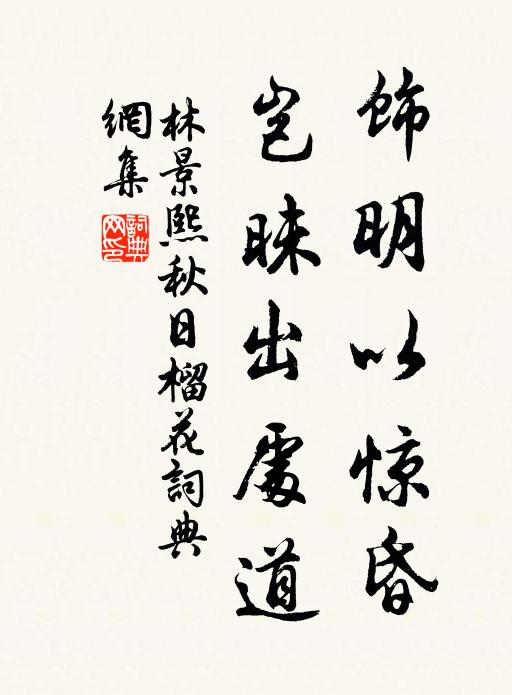 飾明以惊昏
岂昧出處道
林景熙秋日榴花詞典
網集
詞典
网印